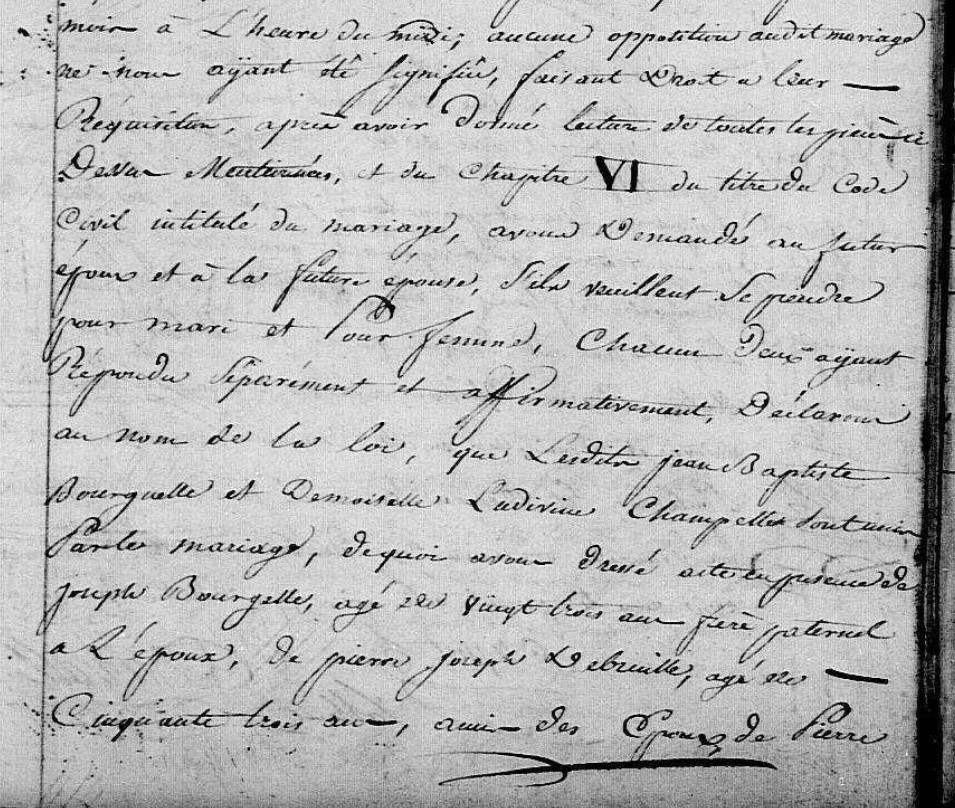 moin à L'heure du midi; aucune oppotition audit mariage
ne nous aÿant été signifiée, faisant Droit a leur —
Réquisition, après avoir Donné lecture de toutes les pieces ci
Dessus Mentionnées, et du Chapitre VI du titre du Code
Civil intitulé du mariage, avons Demandé au futur
époux et à la future épouse, S'ils veuillent se prendre
pour mari et Pour femme, Chacun d'eux aÿant
Répondu séparément et affirmativement, Déclarons
au nom de la loi, que Lesdits jean Baptiste
Bourguelle et Demoiselle Ludivine Champelle sont unis
Par le mariage, de quoi avons dressé acte en presence de
joseph Bourgelle, agé de vingt trois ans frère paternel
a L'époux, de pierre joseph Debruille, agé de —
Cinquante trois ans, ami des Epoux de Pierre